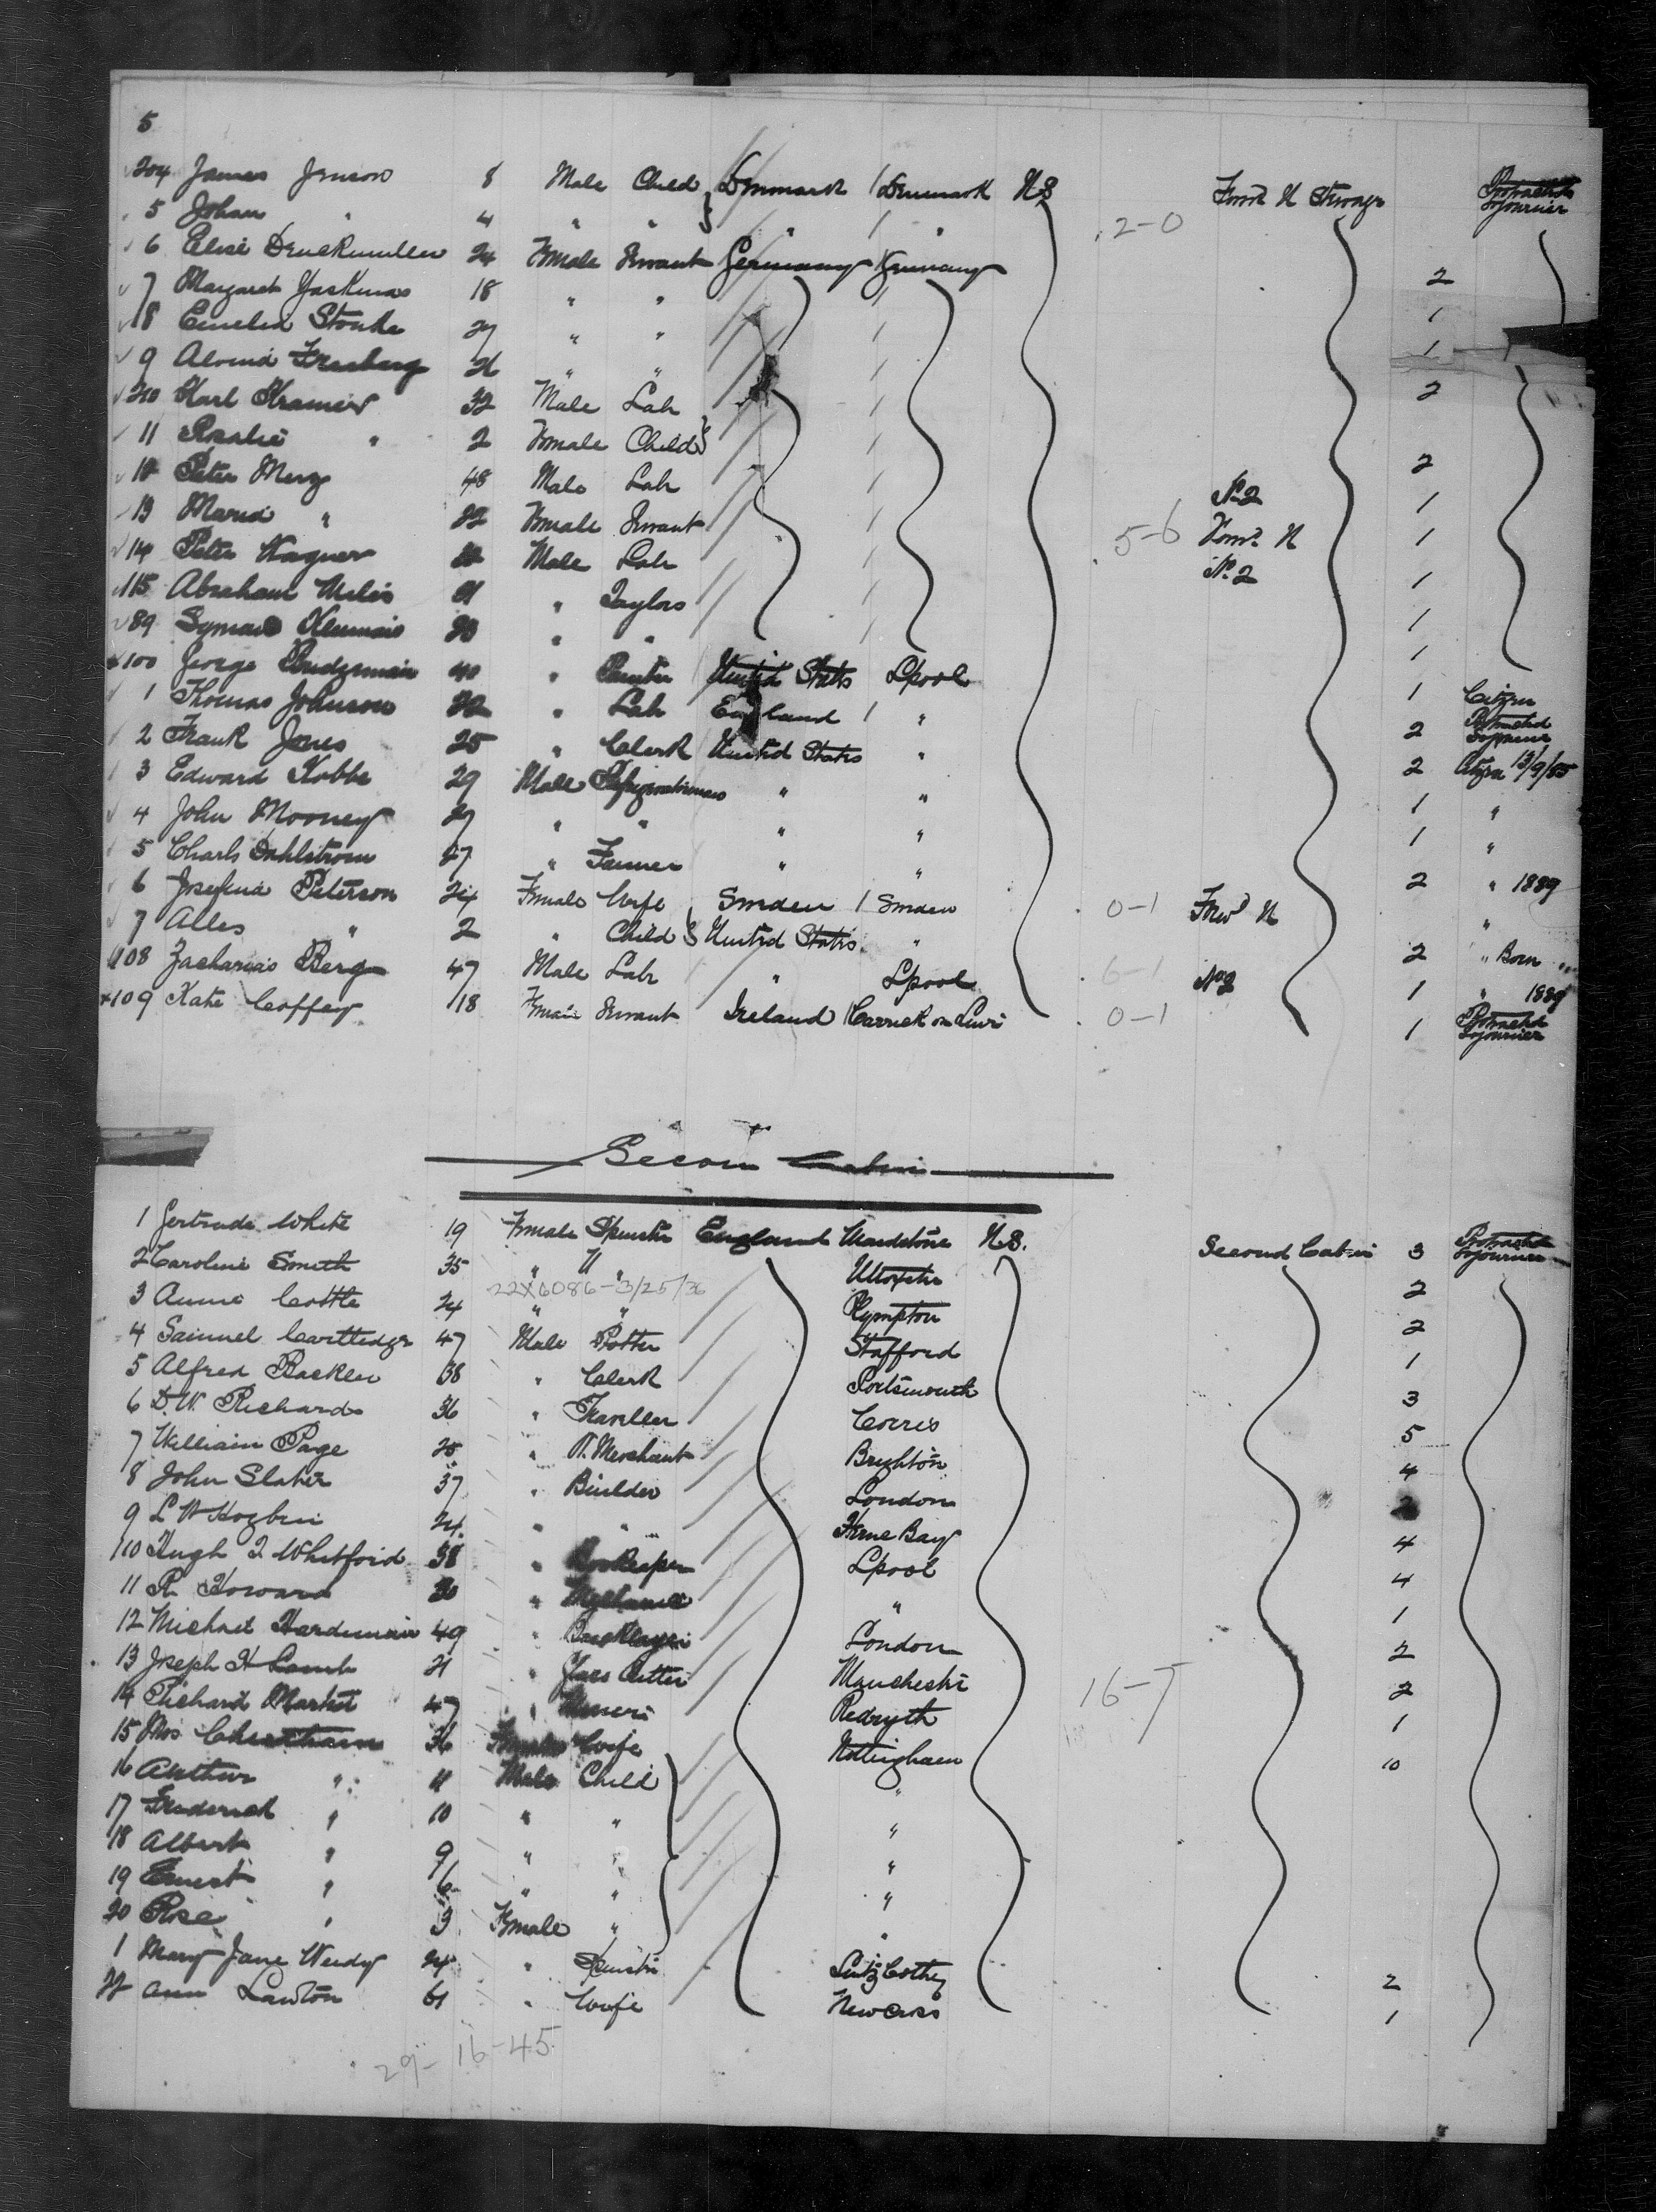 5
204 James Jenson 8 Male Child Denmark / Denmark U.S. Forwd H Steerage Protracted Sojourner
5 Johan " 4 " " " / " 2-0
6 Elise Druckmuller 24 Female Servant Germany / Germany 2
7 Margaret 18 " " / 1
8 27 " " / 1
9 26 " " / 2
210 Karl Kramer 32 Male Lab /
11 Rosalie " 2 Female Child / 2
12 Peter Merz 48 Male Lab / No 2 1
13 Maria " 22 Female Servant / 5-6 Forwd H 1
14 Peter Wagner Male Lab / No 2 1
115 Abraham 21 " Taylors / 1
89 " " / 1
100 George Bridgman 40 " United States L'pool 1 Citizen
1 Thomas Johnson 22 " Lab England / " 2 Protracted Sojourner
2 Frank Jones 25 " Clerk United States " 2 Citizen 13/9/85
3 Edward Kobbe 29 Male " " 1 "
4 John Mooney 27 " " " " 1 "
5 Charls Dahlstrom 27 " Farmer " " 2 " 1889
6 Josefina Peterson 24 Female Wife Sweden / Sweden 0-1 Forwd H "
7 " 2 " Child United States " 2 " Born "
108 Zacharias Berg 47 Male Labr " L'pool 6-1 No 2 1 " 1889
109 Kate Coffey 18 Female Servant Ireland / Carrick on Suir 0-1 1 Protracted Sojourner
Second Cabin
1 Gertrude White 19 Female Spinster England Maidstone U.S. Second Cabin 3 Protracted Sojourner
2 Caroline Smith 35 " " Uttoxeter 2
22X6086-3/25/36
3 Annie Cottle 24 " " Plympton 2
4 Samuel Cartledge 47 Male Potter Stafford 1
5 Alfred 38 " Clerk Portsmouth 3
6 D.W. Richards 36 " Traveller Corris 5
7 William Page 25 " Merchant Brighton 4
8 John Slater 37 " Builder London
9 L W Hogben 24 " " Herne Bay 4
10 Hugh J. Whitford 38 " Bookkeeper L'pool 4
11 R Howard 30 " Mechanic " 1
12 Michael Hardiman 49 " Bricklayer London 2
13 Joseph H Lamb 21 " Glass Cutter Manchester 2
14 Richard 47 " Miner Redruth 16-7 1
15 Mrs Cheetham 36 Female Wife Nottingham 10
16 Arthur " 11 Male Child "
17 Frederick " 10 " " "
18 Albert " 9 " " "
19 Ernest " 6 " " "
20 Rose " 3 Female " "
1 Mary Jane 24 " Spinster 2
22 Ann Lawton 61 " Wife New Cross 1
29-16-45